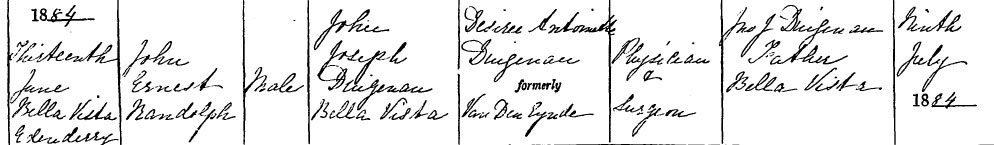 1884
Thirteenth
June
Bella Vista
Edenderry
John
Ernest
Randolph
Male
John
Joseph
Dingenan
Bella Vista
Desiree Antoinette
Dingenan
formerly
Van Den Eynde
Physician
&
Surgeon
Jno J Dingenan
Father
Bella Vista
Ninth
July
1884